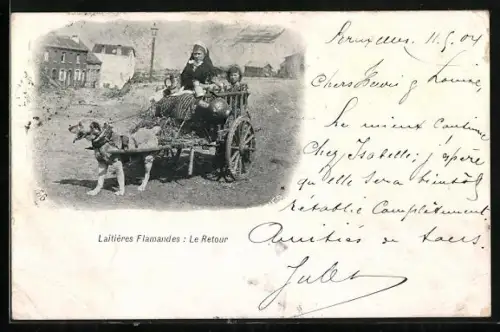 Bruxelles 11.5.04
Chers Henri & Louise,
Le mieux continue
Chez Isabelle; j'espère
qu'elle sera bientôt
rétablie complètement.
Amitiés de tous.
Jules
Laitières Flamandes : Le Retour